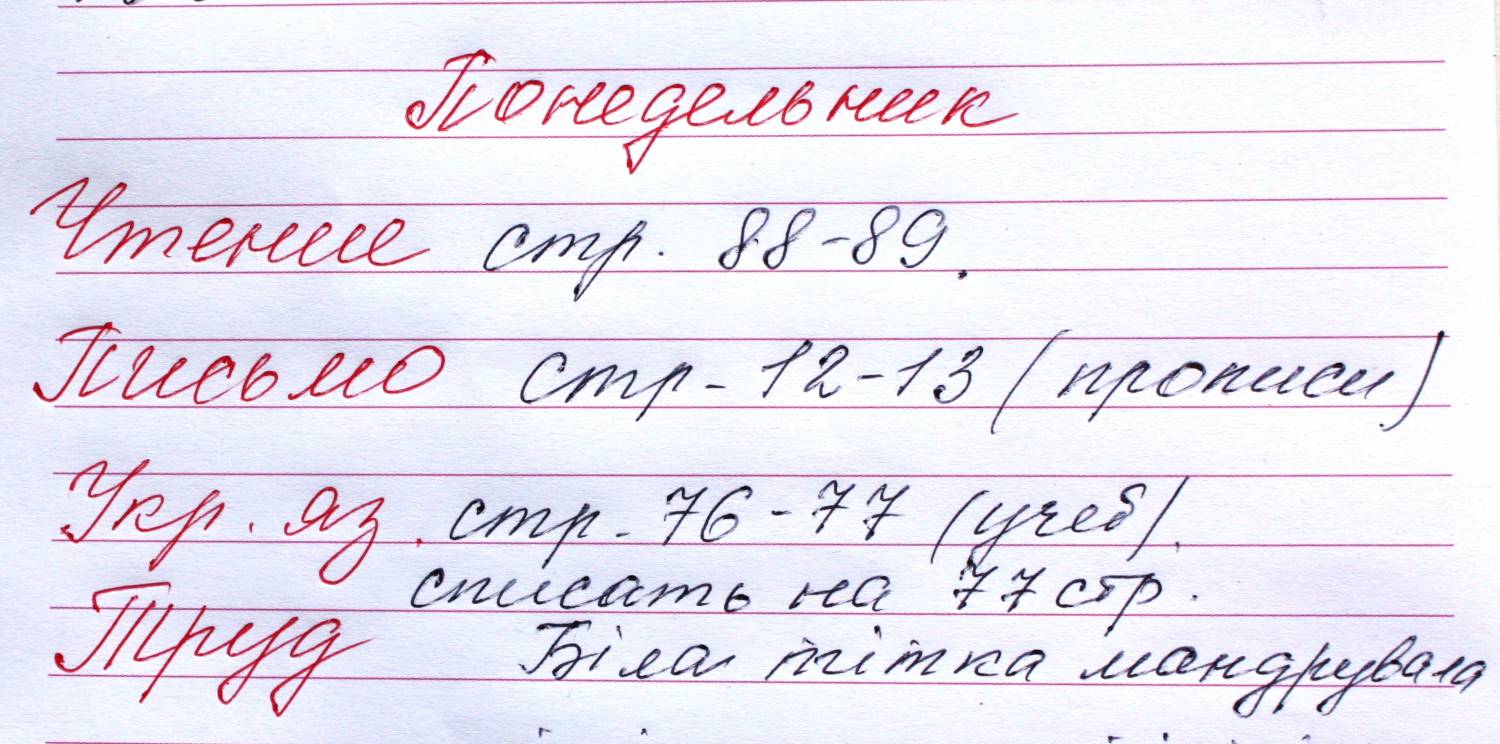 Понедельник
Чтение стр. 88-89.
Письмо стр- 12-13 (прописи)
Укр. яз. стр. 76-77 (учеб).
списать на 77 стр.
Труд Біла тітка мандрувала